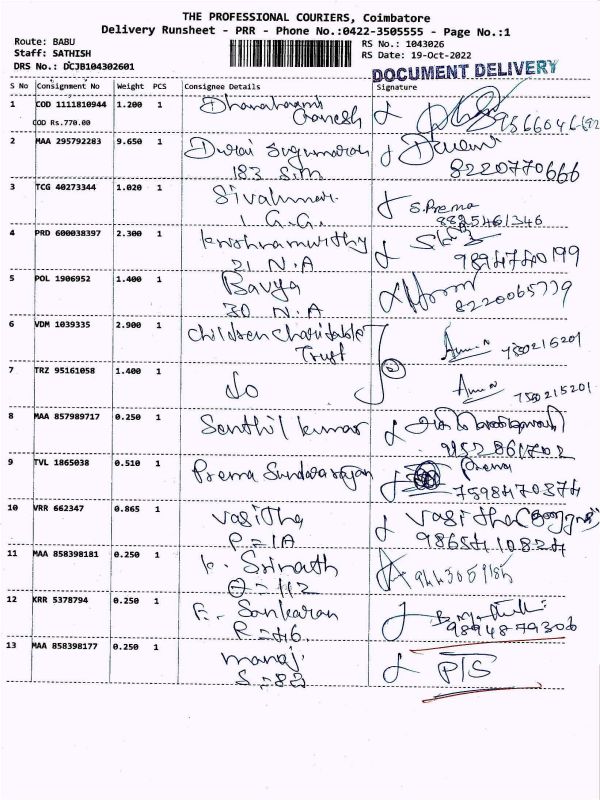 THE PROFESSIONAL COURIERS, Coimbatore
Delivery Runsheet - PRR - Phone No.:0422-3505555 - Page No.:1
Route: BABU
Staff: SATHISH
DRS No.: DCJB104302601
RS No.: 1043026
RS Date: 19-Oct-2022
DOCUMENT DELIVERY
S No Consignment No Weight PCS Consignee Details Signature
1 COD 1111810944 1.200 1
COD Rs.770.00
2 MAA 295792283 9.650 1 Durai Sugumaran
183 S.M 8220770666
3 TCG 40273344 1.020 1 S.Prema
1 G.G. 8825461346
4 PRD 600038397 2.300 1 krishnamurthy
21 N.A
5 POL 1906952 1.400 1 Bavya
30 N.A
6 VDM 1039335 2.900 1 Children Charitable
Trust
7 TRZ 95161058 1.400 1 Do
8 MAA 857989717 0.250 1 Senthil kumar
9 TVL 1865038 0.510 1 Prema Sundararajan Prema
7598470374
10 VRR 662347 0.865 1 Vasitha Vasitha
P=1A 9865410824
11 MAA 858398181 0.250 1 k. Srinath
12 KRR 5378794 0.250 1 Sankaran
9894879306
13 MAA 858398177 0.250 1 manoj. P|S